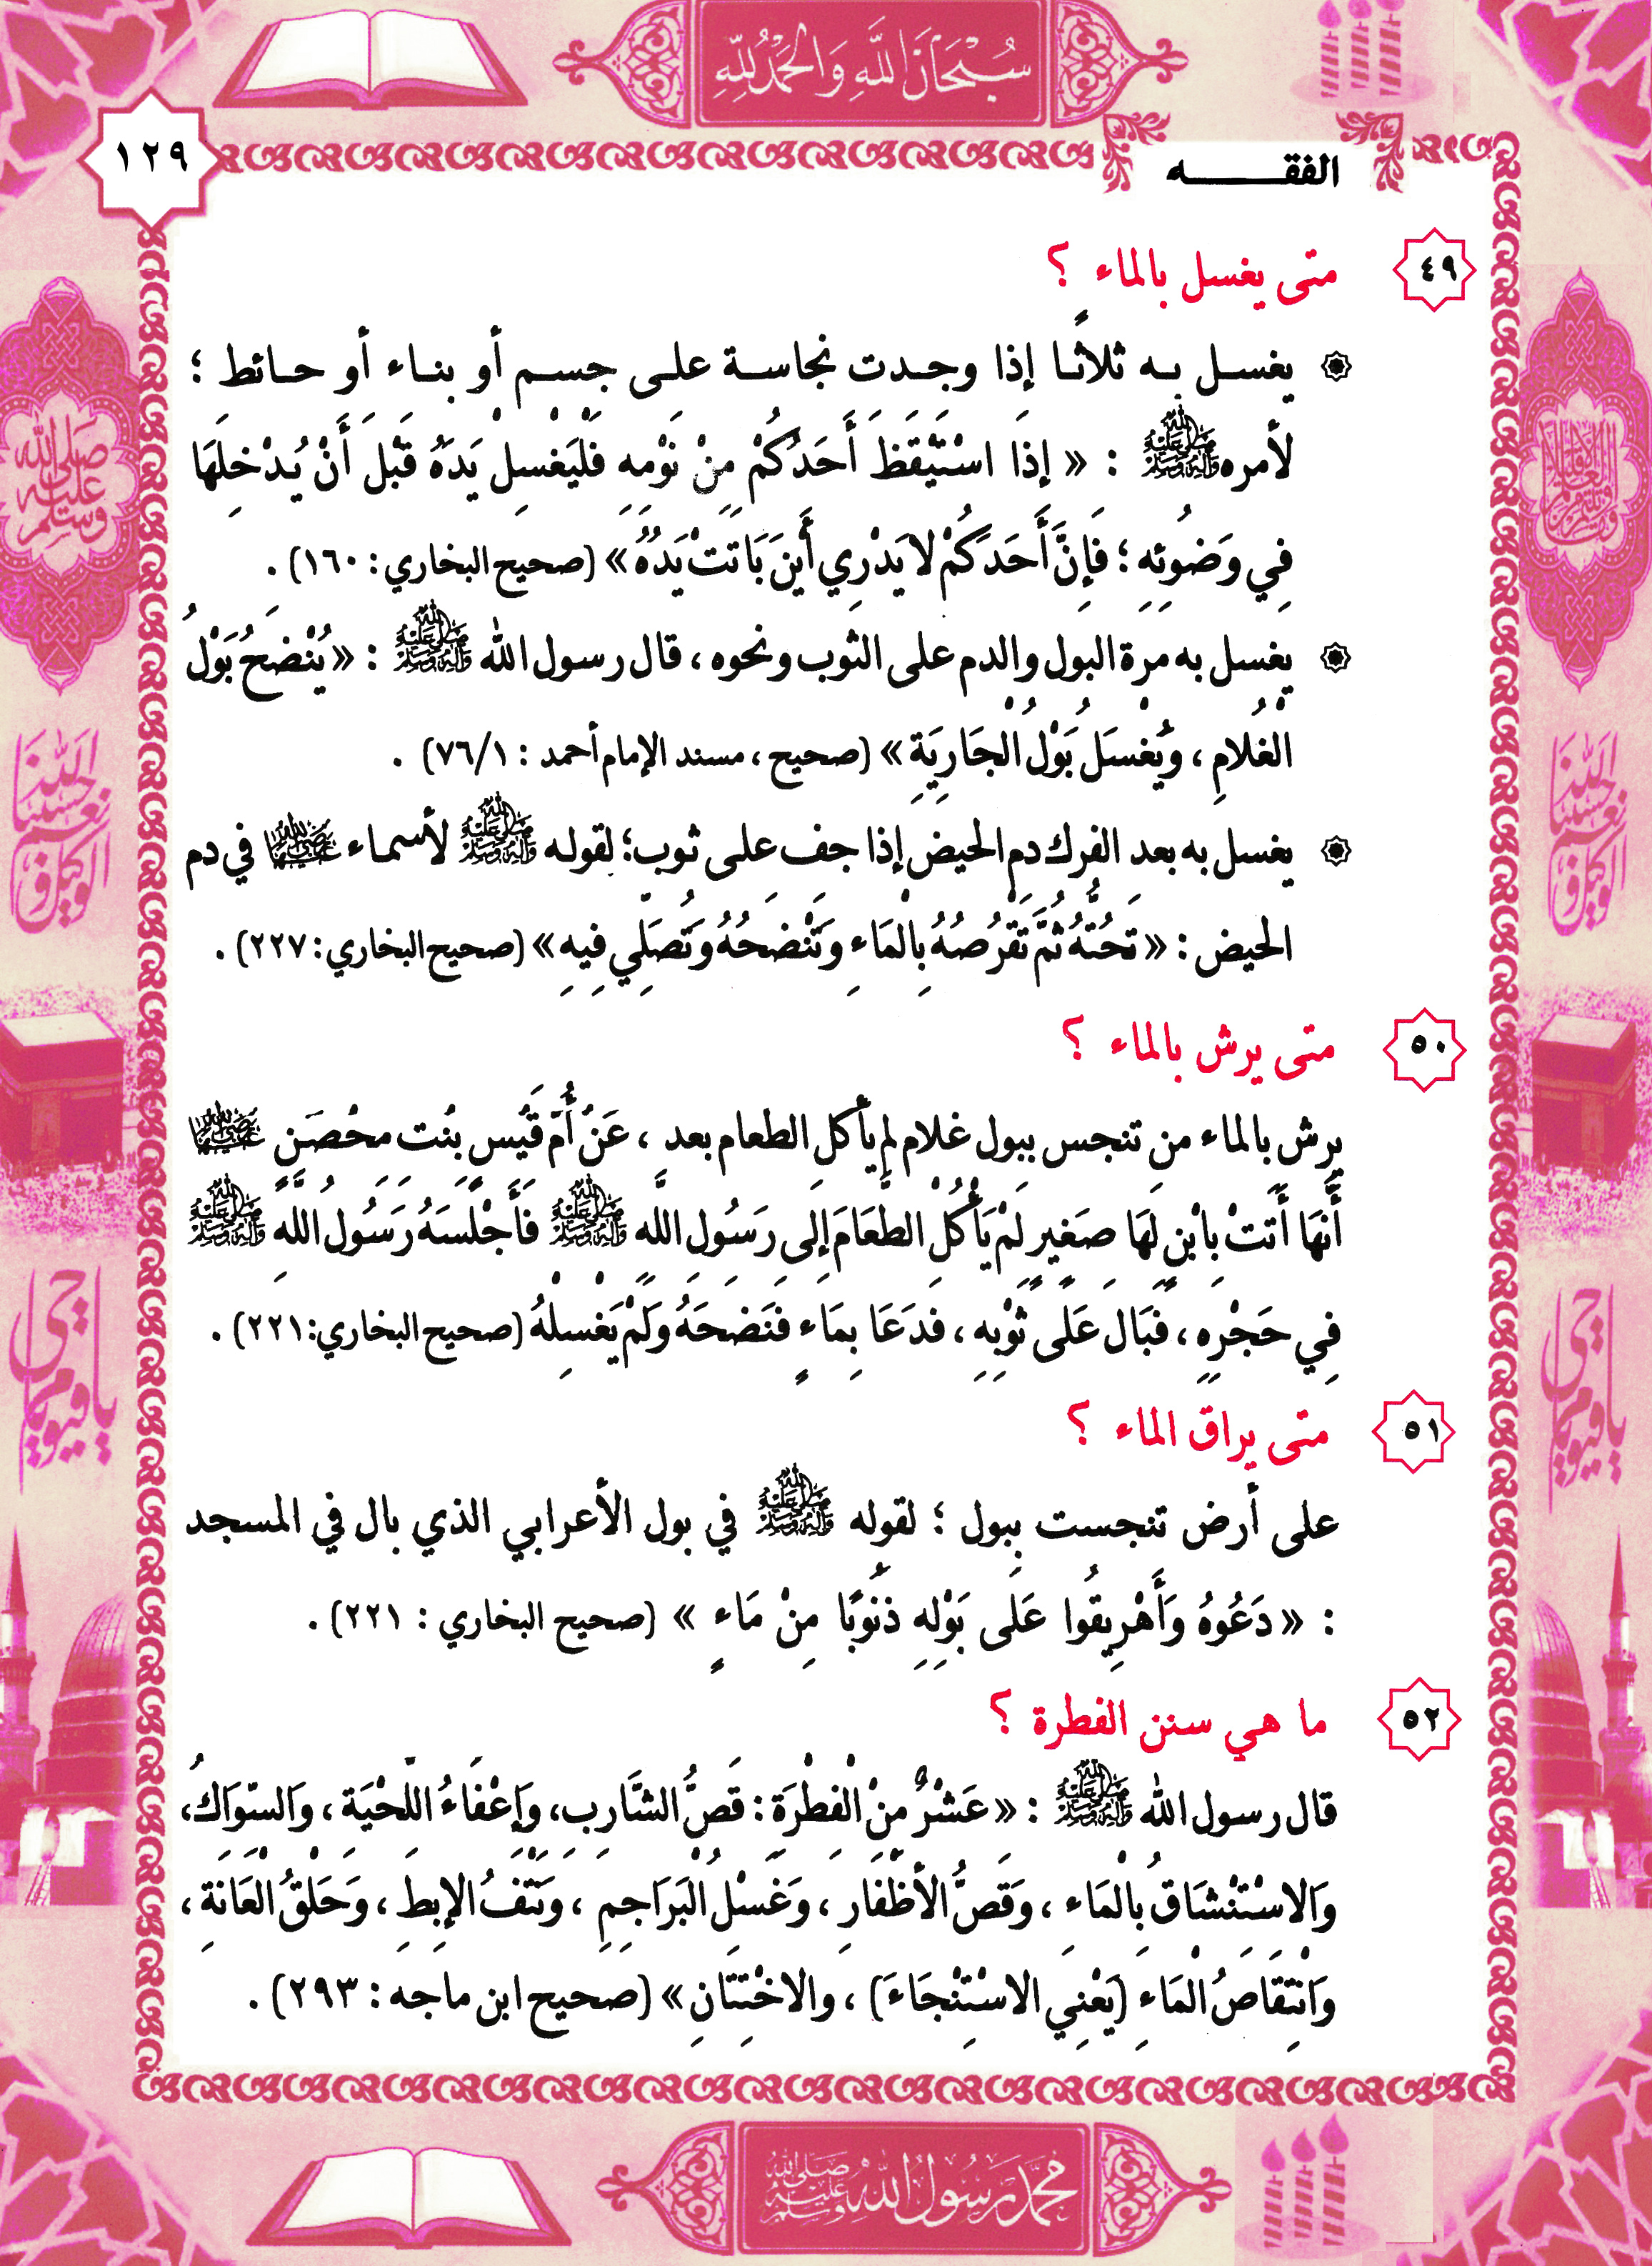 سُبْحَانَ اللَّهِ وَالْحَمْدُ لِلَّهِ
١٢٩
الفقـــــه
٤٩ متى يغسل بالماء ؟
يغسـل بـه ثلاثًـا إذا وجـدت نجاسـة علـى جسـم أو بنـاء أو حـائط ؛
لأمره ﷺ : « إِذَا اسْتَيْقَظَ أَحَدُكُمْ مِنْ نَوْمِهِ فَلْيَغْسِلْ يَدَهُ قَبْلَ أَنْ يُدْخِلَهَا
فِي وَضُوئِهِ ؛ فَإِنَّ أَحَدَكُمْ لا يَدْرِي أَيْنَ بَاتَتْ يَدُهُ » (صحيح البخاري : ١٦٠) .
يغسل به مرة البول والدم على الثوب ونحوه ، قال رسول الله ﷺ : « يُنْضَحُ بَوْلُ
الْغُلَامِ ، وَيُغْسَلُ بَوْلُ الْجَارِيَةِ » (صحيح ، مسند الإمام أحمد : ٧٦/١) .
يغسل به بعد الفرك دم الحيض إذا جف على ثوب؛ لقوله ﷺ لأسماء رضي الله عنها في دم
الحيض : « تَحُتُّهُ ثُمَّ تَقْرُصُهُ بِالْمَاءِ وَتَنْضَحُهُ وَتُصَلِّي فِيهِ » (صحيح البخاري : ٢٢٧) .
٥٠ متى يرش بالماء ؟
يرش بالماء من تنجس ببول غلام لم يأكل الطعام بعد ، عَنْ أُمِّ قَيْسٍ بِنْتِ مِحْصَنٍ رضي الله عنها
أَنَّهَا أَتَتْ بِابْنٍ لَهَا صَغِيرٍ لَمْ يَأْكُلْ الطَّعَامَ إِلَى رَسُولِ اللَّهِ ﷺ فَأَجْلَسَهُ رَسُولُ اللَّهِ ﷺ
فِي حَجْرِهِ ، فَبَالَ عَلَى ثَوْبِهِ ، فَدَعَا بِمَاءٍ فَنَضَحَهُ وَلَمْ يَغْسِلْهُ (صحيح البخاري: ٢٢١) .
٥١ متى يراق الماء ؟
على أرض تنجست ببول ؛ لقوله ﷺ في بول الأعرابي الذي بال في المسجد
: « دَعُوهُ وَأَهْرِيقُوا عَلَى بَوْلِهِ ذَنُوبًا مِنْ مَاءٍ » (صحيح البخاري : ٢٢١) .
٥٢ ما هي سنن الفطرة ؟
قال رسول الله ﷺ : « عَشْرٌ مِنْ الْفِطْرَةِ : قَصُّ الشَّارِبِ، وَإِعْفَاءُ اللِّحْيَةِ ، وَالسِّوَاكُ،
وَالاسْتِنْشَاقُ بِالْمَاءِ ، وَقَصُّ الأَظْفَارِ ، وَغَسْلُ الْبَرَاجِمِ ، وَنَتْفُ الإِبِطِ ، وَحَلْقُ الْعَانَةِ ،
وَانْتِقَاصُ الْمَاءِ (يَعْنِي الاسْتِنْجَاءَ) ، والاخْتِتَانِ » (صحيح ابن ماجه : ٢٩٣) .
صلى الله عليه وسلم
حسبنا الله ونعم الوكيل
يا حي يا قيوم
محمد رسول الله صلى الله عليه وسلم